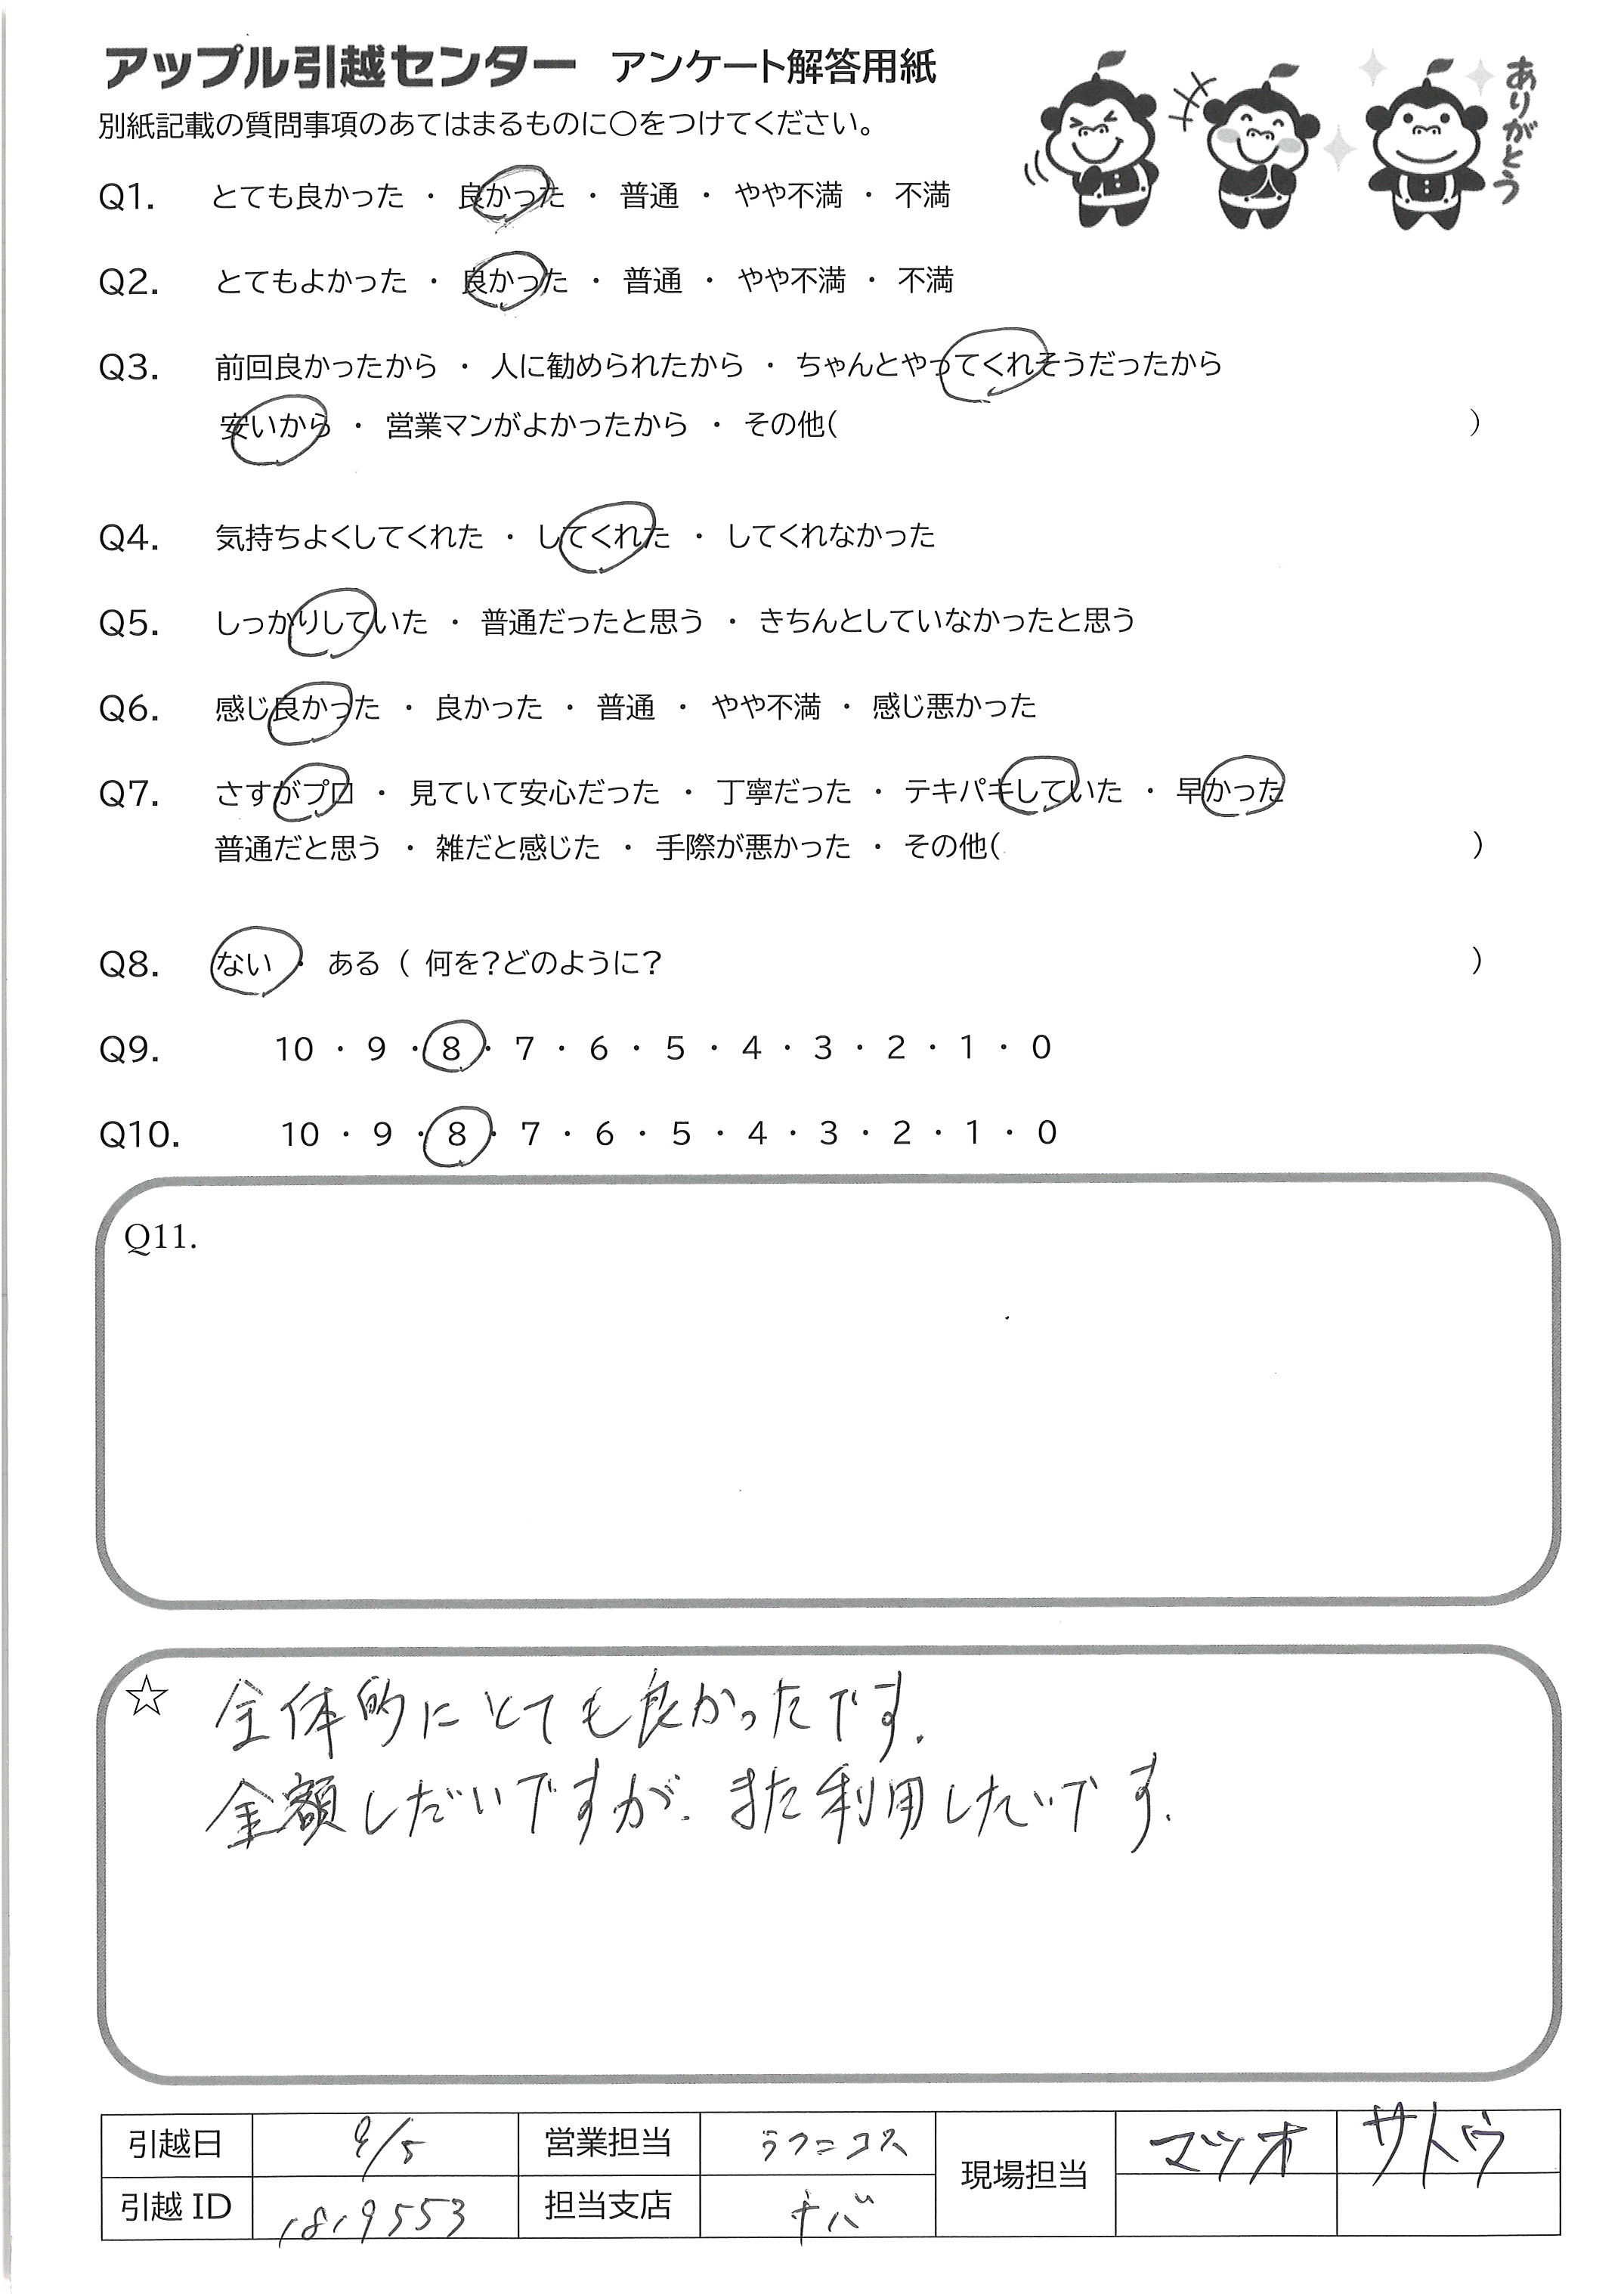 アップル引越センター アンケート解答用紙
ありがとう
別紙記載の質問事項のあてはまるものに○をつけてください。
Q1. とても良かった ・ 良かった ・ 普通 ・ やや不満 ・ 不満
Q2. とてもよかった ・ 良かった ・ 普通 ・ やや不満 ・ 不満
Q3. 前回良かったから ・ 人に勧められたから ・ ちゃんとやってくれそうだったから
安いから ・ 営業マンがよかったから ・ その他( )
Q4. 気持ちよくしてくれた ・ してくれた ・ してくれなかった
Q5. しっかりしていた ・ 普通だったと思う ・ きちんとしていなかったと思う
Q6. 感じ良かった ・ 良かった ・ 普通 ・ やや不満 ・ 感じ悪かった
Q7. さすがプロ ・ 見ていて安心だった ・ 丁寧だった ・ テキパキしていた ・ 早かった
普通だと思う ・ 雑だと感じた ・ 手際が悪かった ・ その他( )
Q8. ない ・ ある ( 何を?どのように? )
Q9. 10 ・ 9 ・ 8 ・ 7 ・ 6 ・ 5 ・ 4 ・ 3 ・ 2 ・ 1 ・ 0
Q10. 10 ・ 9 ・ 8 ・ 7 ・ 6 ・ 5 ・ 4 ・ 3 ・ 2 ・ 1 ・ 0
Q11.
☆ 全体的にとても良かったです.
金額しだいですが、また利用したいです.
引越日 9/5 営業担当 現場担当 マツオ サトウ
引越ID 1819553 担当支店 チバ